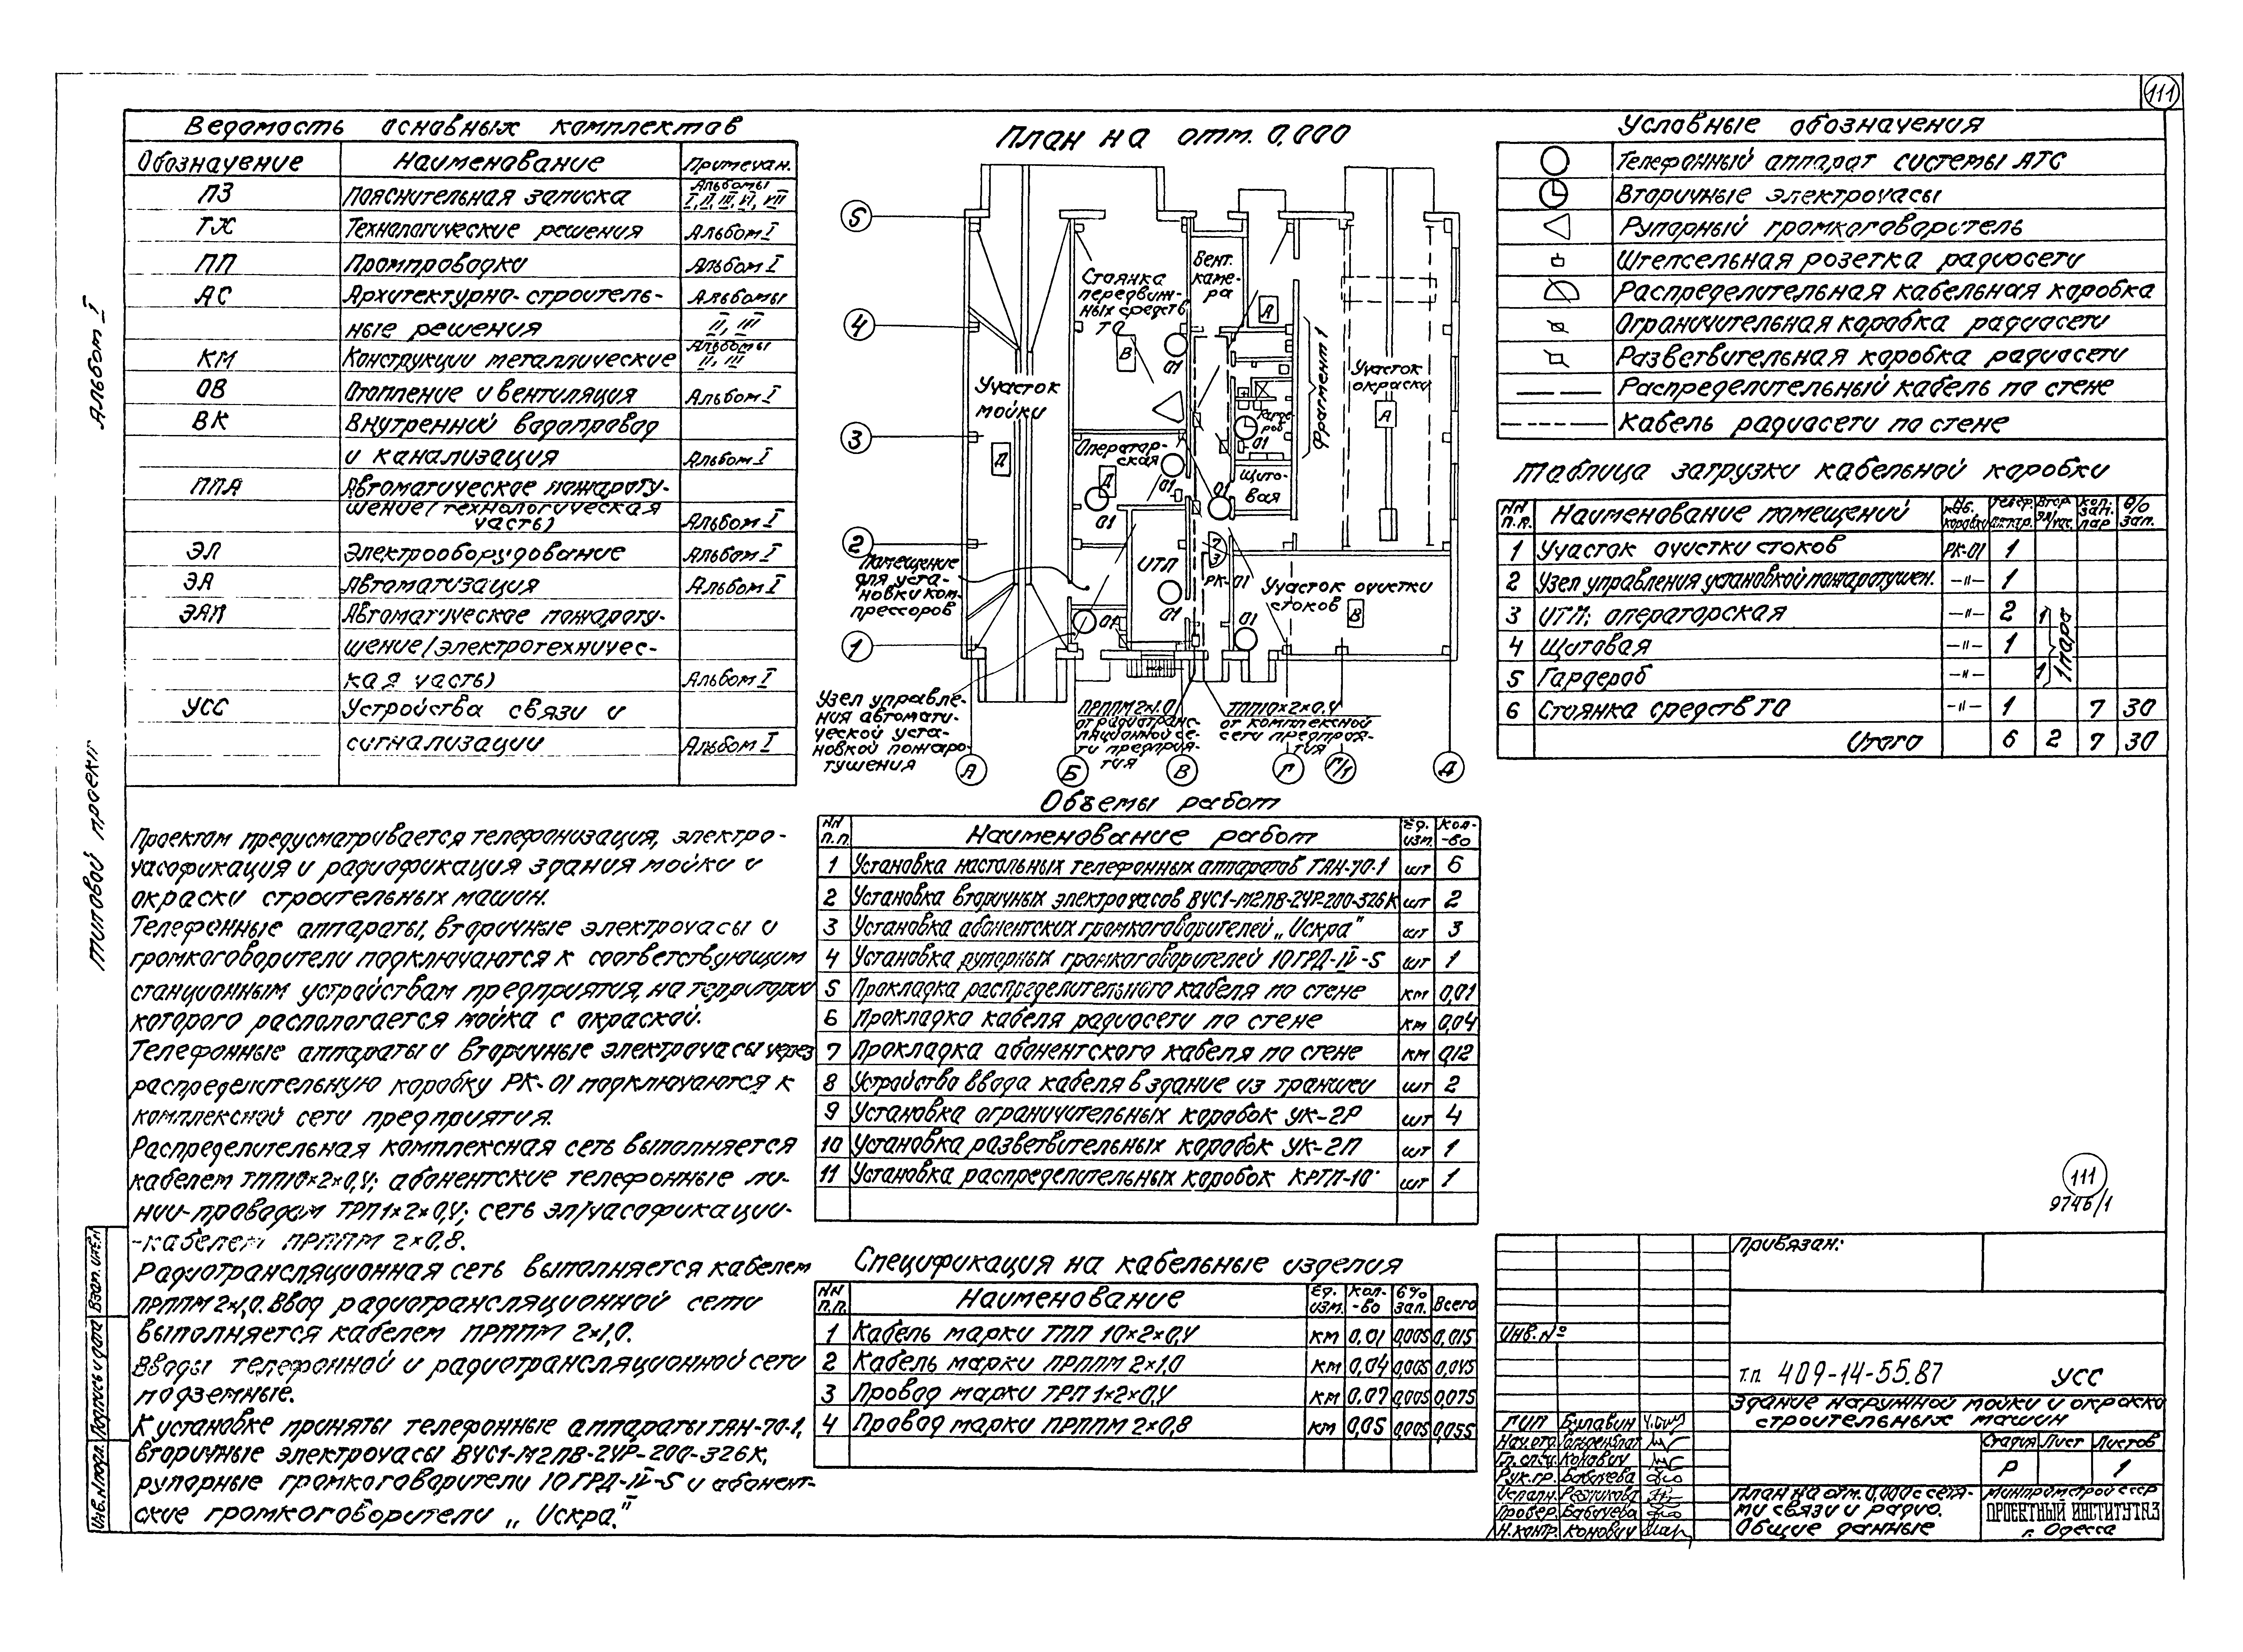 111
Альбом I
Типовой проект
Ведомость основных комплектов
Обозначение Наименование Примечан.
ПЗ Пояснительная записка Альбомы I, II, III, VI, VII
ТХ Технологические решения Альбом I
ПП Промпроводки Альбом I
АС Архитектурно-строитель- Альбомы
ные решения II, III
КМ Конструкции металлические Альбомы II, III
ОВ Отопление и вентиляция Альбом I
ВК Внутренний водопровод
и канализация Альбом I
ППА Автоматическое пожароту-
шение (технологическая
часть) Альбом I
ЭЛ Электрооборудование Альбом I
ЭА Автоматизация Альбом I
ЭАП Автоматическое пожароту-
шение (электротехничес-
кая часть) Альбом I
УСС Устройства связи и
сигнализации Альбом I
План на отм. 0,000
5
4
3
2
1
Стоянка
передвиж-
ных средств
ТО
В
01
Вент.
каме-
ра
А
Участок
мойки
Д
Участок
окраски
А
Фрагмент 1
Гарде-
роб
01
Оператор-
ская
Д
01
01
01
Щито-
вая
Помещение
для уста-
новки ком-
прессоров
ИТП
01
РК-01
Участок очистки
стоков
В
01
01
Узел управле-
ния автомати-
ческой уста-
новкой пожаро-
тушения
ПРППМ 2×1.0
от радиотранс-
ляционной се-
ти предприя-
тия
ТПП10×2×0,4
от комплексной
сети предприя-
тия
А Б В Г Г/1 Д
Условные обозначения
Телефонный аппарат системы АТС
Вторичные электрочасы
Рупорный громкоговоритель
Штепсельная розетка радиосети
Распределительная кабельная коробка
Ограничительная коробка радиосети
Разветвительная коробка радиосети
Распределительный кабель по стене
Кабель радиосети по стене
Таблица загрузки кабельной коробки
NN п.п. Наименование помещений каб. коробки Телеф. аппар. Втор. эл/час. Кол. зан. пар % зап.
1 Участок очистки стоков РК-01 1
2 Узел управления установкой пожаротушен. —"— 1
3 ИТП; операторская —"— 2 1
4 Щитовая —"— 1 1 пара
5 Гардероб —"— 1
6 Стоянка средств ТО —"— 1 7 30
Итого 6 2 7 30
Проектом предусматривается телефонизация, электро-
часофикация и радиофикация здания мойки и
окраски строительных машин.
Телефонные аппараты, вторичные электрочасы и
громкоговорители подключаются к соответствующим
станционным устройствам предприятия, на территории
которого распологается мойка с окраской.
Телефонные аппараты и вторичные электрочасы через
распределительную коробку РК-01 подключаются к
комплексной сети предприятия.
Распределительная комплексная сеть выполняется
кабелем ТПП10×2×0,4; абонентские телефонные ли-
нии-проводом ТРП1×2×0,4; сеть эл/часофикации-
-кабелем ПРППМ 2×0,8.
Радиотрансляционная сеть выполняется кабелем
ПРППМ 2×1,0. Ввод радиотрансляционной сети
выполняется кабелем ПРППМ 2×1,0.
Вводы телефонной и радиотрансляционной сети
подземные.
К установке приняты телефонные аппараты ТАН-70-1,
вторичные электрочасы ВЧС1-М2ПВ-24Р-200-326К,
рупорные громкоговорители 10ГРД-IV-5 и абонент-
ские громкоговорители „Искра."
Объемы работ
NN п.п. Наименование работ Ед. изм. Кол-во
1 Установка настольных телефонных аппаратов ТАН-70-1 шт 6
2 Установка вторичных электрочасов ВЧС1-М2ПВ-24Р-200-326К шт 2
3 Установка абонентских громкоговорителей „Искра" шт 3
4 Установка рупорных громкоговорителей 10ГРД-IV-5 шт 1
5 Прокладка распределительного кабеля по стене км 0,01
6 Прокладка кабеля радиосети по стене км 0,04
7 Прокладка абонентского кабеля по стене км 0,12
8 Устройство ввода кабеля в здание из траншеи шт 2
9 Установка ограничительных коробок УК-2Р шт 4
10 Установка разветвительных коробок УК-2П шт 1
11 Установка распределительных коробок КРТП-10 шт 1
Спецификация на кабельные изделия
NN п.п. Наименование Ед. изм. Кол-во 6% зап. Всего
1 Кабель марки ТПП 10×2×0,4 км 0,01 0,005 0,015
2 Кабель марки ПРППМ 2×1,0 км 0,04 0,005 0,045
3 Провод марки ТРП 1×2×0,4 км 0,07 0,005 0,075
4 Провод марки ПРППМ 2×0,8 км 0,05 0,005 0,055
111
9746/1
Привязан:
Инв. №
т.п. 409-14-55.87 УСС
Здание наружной мойки и окраски
строительных машин
ГИП Булавин
Нач. отд.
Гл. спец. Конович
Рук. гр. Бабичева
Исполн. Резникова
Провер. Бабичева
Н. контр. Конович
Стадия Лист Листов
Р 1
План на отм. 0,000 с сетя-
ми связи и радио.
Общие данные
Минпромстрой СССР
ПРОЕКТНЫЙ ИНСТИТУТ №3
г. Одесса
Инв. N подл. Подпись и дата Взам. инв. N